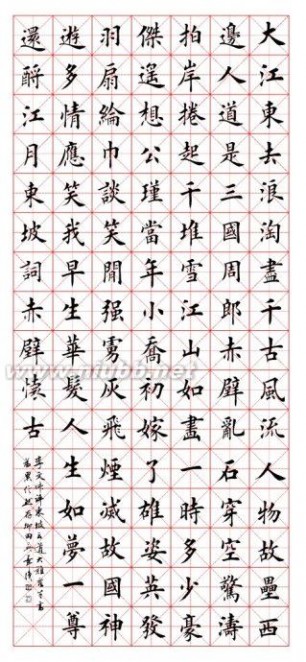 大江東去浪淘盡千古風流人物故壘西
邊人道是三國周郎赤壁亂石穿空驚濤
拍岸捲起千堆雪江山如畫一時多少豪
傑遥想公瑾當年小喬初嫁了雄姿英發
羽扇綸巾談笑閒强虜灰飛煙滅故國神
遊多情應笑我早生華髮人生如夢一尊
還酹江月東坡詞赤壁懷古
www.niubb.net